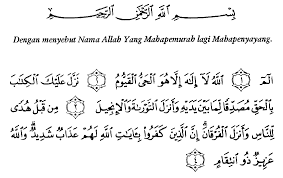 بِسْمِ اللَّهِ الرَّحْمَٰنِ الرَّحِيمِ
Dengan menyebut Nama Allah Yang Mahapemurah lagi Mahapenyayang.
الٓمٓ ﴿١﴾ اللَّهُ لَآ إِلَٰهَ إِلَّا هُوَ الْحَيُّ الْقَيُّومُ ﴿٢﴾ نَزَّلَ عَلَيْكَ الْكِتَٰبَ
بِالْحَقِّ مُصَدِّقًا لِّمَا بَيْنَ يَدَيْهِ وَأَنزَلَ التَّوْرَىٰةَ وَالْإِنجِيلَ ﴿٣﴾ مِن قَبْلُ هُدًى
لِّلنَّاسِ وَأَنزَلَ الْفُرْقَانَ إِنَّ الَّذِينَ كَفَرُوا۟ بِـَٔايَٰتِ اللَّهِ لَهُمْ عَذَابٌ شَدِيدٌ وَاللَّهُ
عَزِيزٌ ذُو انتِقَامٍ ﴿٤﴾